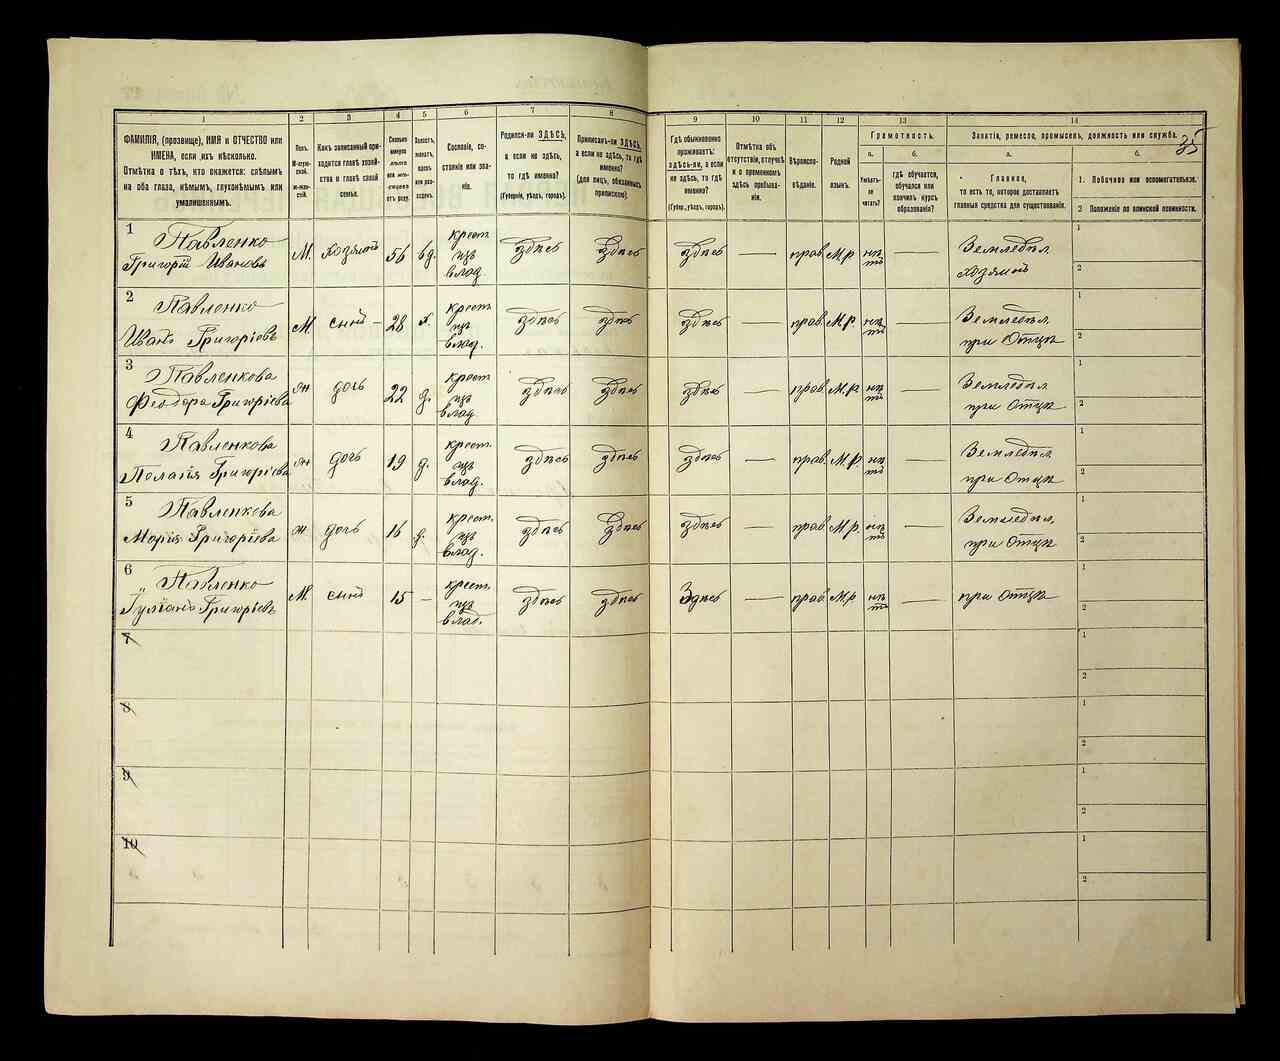 35
1 2 3 4 5 6 7 8 9 10 11 12 13 14
ФАМИЛІЯ, (прозвище), ИМЯ и ОТЧЕСТВО или
ИМЕНА, если ихъ нѣсколько.
Отмѣтка о тѣхъ, кто окажется: слѣпымъ
на оба глаза, нѣмымъ, глухонѣмымъ или
умалишеннымъ.
Полъ.
М-муж-
ской.
ж-жен-
скій.
Какъ записанный при-
ходится главѣ хозяй-
ства и главѣ своей
семьи.
Сколько
минуло
лѣтъ
или мѣ-
сяцевъ
отъ роду.
Холостъ,
женатъ,
вдовъ
или раз-
веденъ.
Сословіе, со-
стояніе или зва-
ніе.
Родился-ли ЗДѢСЬ,
а если не здѣсь,
то гдѣ именно?
(Губернія, уѣздъ, городъ).
Приписанъ-ли ЗДѢСЬ,
а если не здѣсь, то гдѣ
именно?
(для лицъ, обязанныхъ
припискою).
Гдѣ обыкновенно
проживаетъ:
здѣсь-ли, а если
не здѣсь, то гдѣ
именно?
(Губер., уѣздъ, городъ).
Отмѣтка объ
отсутствіи, отлучкѣ
и о временномъ
здѣсь пребыва-
ніи.
Вѣроиспо-
вѣданіе.
Родной
языкъ.
Грамотность.
а.
Умѣетъ-
ли
читать?
б.
гдѣ обучается,
обучался или
кончилъ курсъ
образованія?
Занятія, ремесло, промыселъ, должность или служба.
а.
Главное,
то есть то, которое доставляетъ
главныя средства для существованія.
б.
1. Побочное или вспомогательное.
2 Положеніе по воинской повинности.
1 Павленко
Григорій Ивановъ М. хозяинъ 56 вд. крест. изъ влад. здѣсь здѣсь здѣсь — прав. М.р. нѣтъ — Земледѣл. хозяинъ 1 2
2 Павленко
Иванъ Григоріевъ М. сынъ 28 х. крест. изъ влад. здѣсь здѣсь здѣсь — прав. М.р. нѣтъ — Земледѣл. при Отцѣ 1 2
3 Павленкова
Феодора Григоріева ж дочь 22 д. крест. изъ влад. здѣсь здѣсь здѣсь — прав. М.р. нѣтъ — Земледѣл. при Отцѣ 1 2
4 Павленкова
Полагія Григоріева ж дочь 19 д. крест. изъ влад. здѣсь здѣсь здѣсь — прав. М.р. нѣтъ — Земледѣл. при Отцѣ 1 2
5 Павленкова
Марія Григоріева ж. дочь 16 д. крест. изъ влад. здѣсь здѣсь здѣсь — прав. М.р. нѣтъ — Земледѣл. при Отцѣ 1 2
6 Павленко
Гуліанъ Григоріевъ М. сынъ 15 — крест. изъ влад. здѣсь здѣсь Здѣсь — прав. М.р. нѣтъ — при Отцѣ 1 2
7 1 2
8 1 2
9 1 2
10 1 2